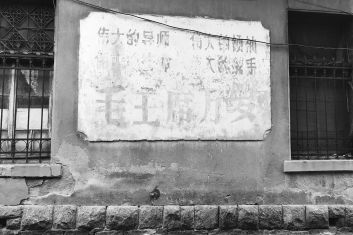 伟大的导师 伟大的领袖
大的舵手
毛主席万岁